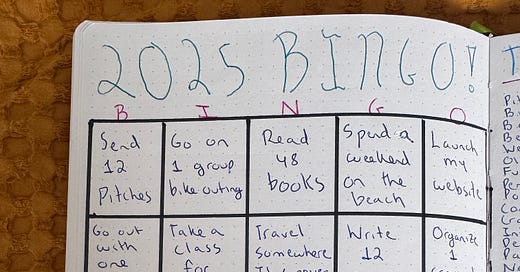 2025 BINGO!
B I N G O
Send
12
Pitches
Go on
1 group
bike outing
Read
48
books
Spend a
weekend
on the
beach
Launch
my
website
Go out
with
one
Take a
class
for
Travel
somewhere
Write
12
Organize
1